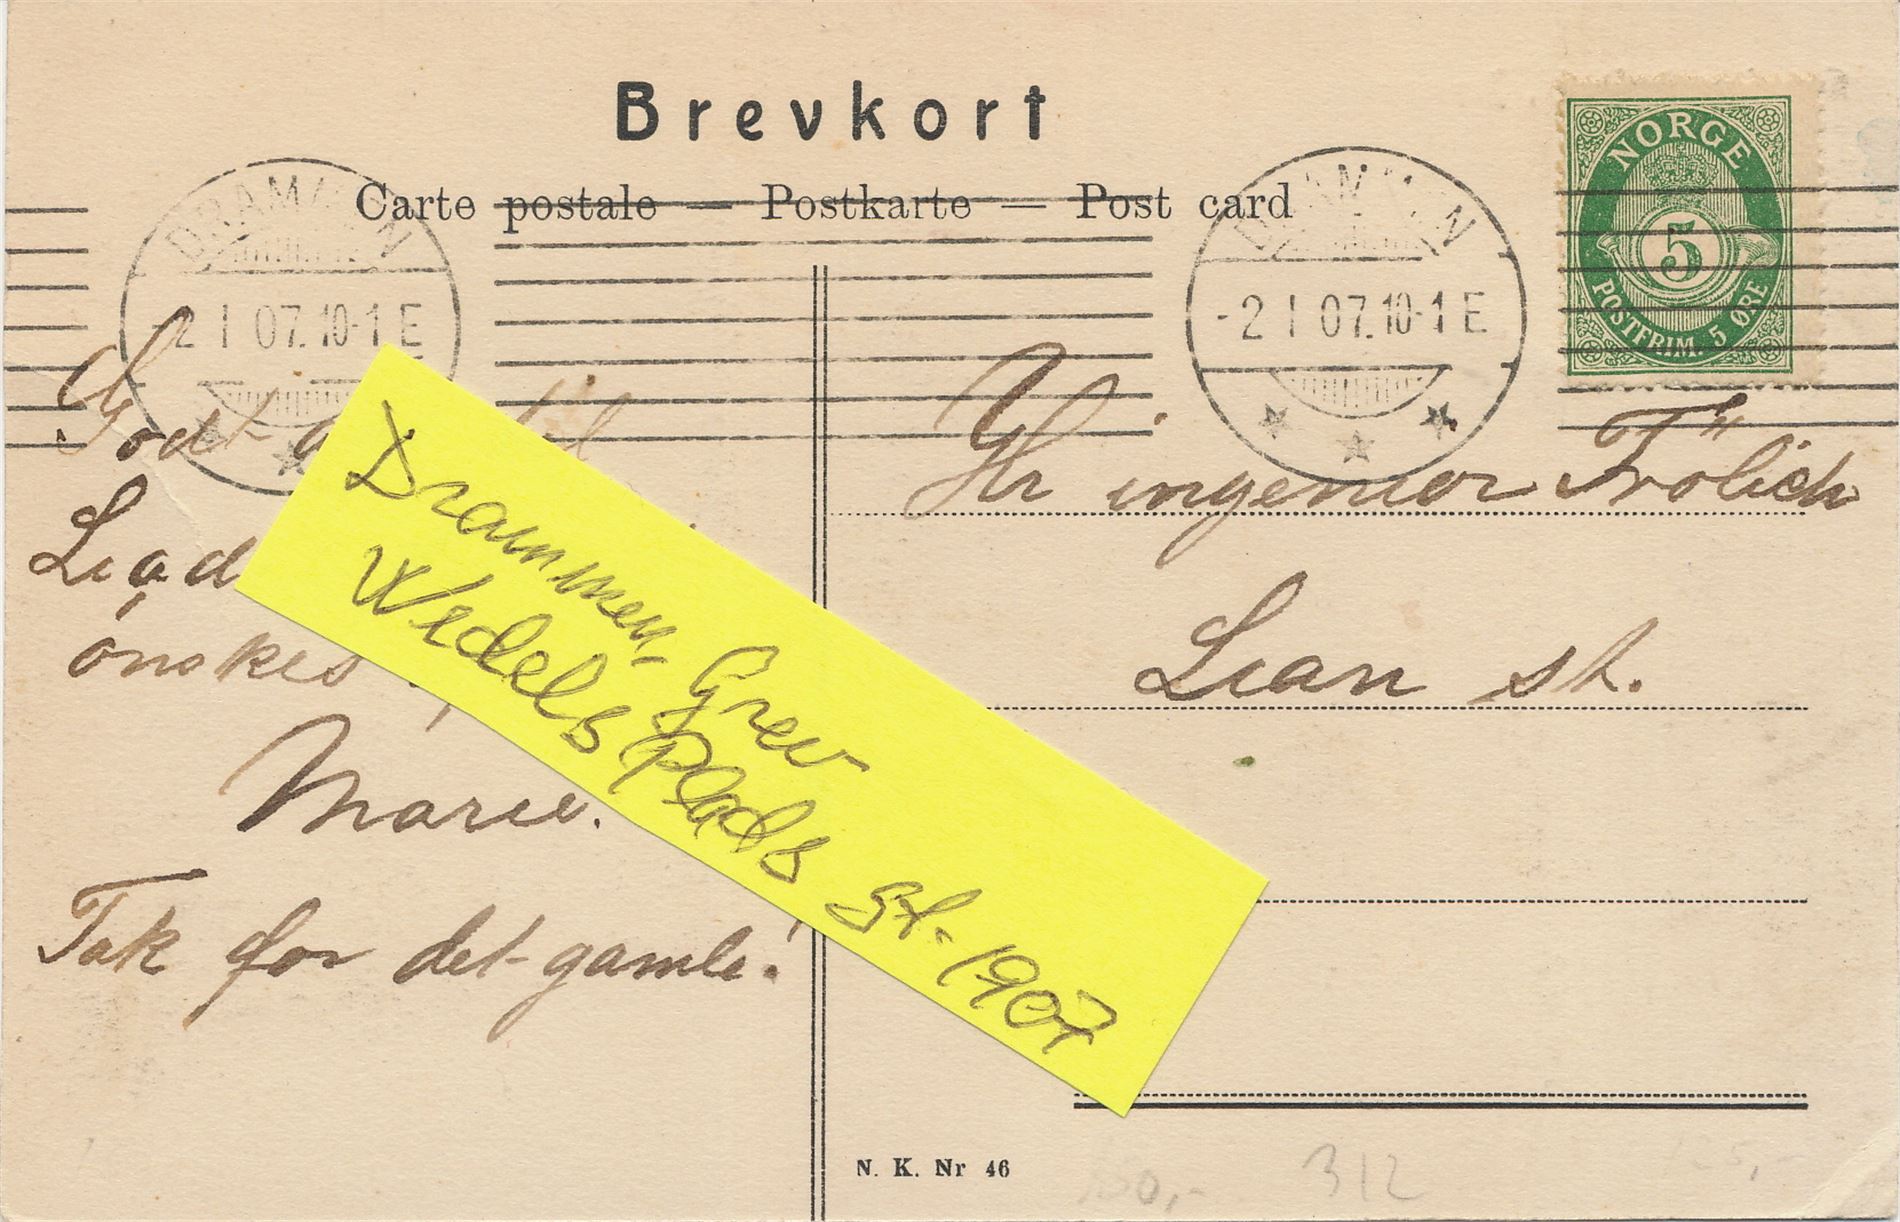 Brevkort
Carte postale — Postkarte — Post card
DRAMMEN
-2 I 07. 10-1 E
DRAMMEN
-2 I 07. 10-1 E
NORGE
5
POSTFRIM. 5 ØRE
Godt
ønskes
Marie.
Tak for det gamle.
Hr ingeniør Frölich
Lian st.
Drammen, Grev
Wedels Plads
st. 1907
N. K. Nr 46
312